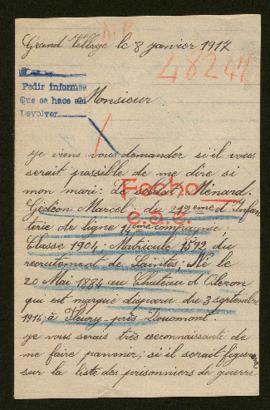 Grand Village le 8 janvier 1917
48241
Pedir informes
Que se hace
Devolver
Monsieur
je viens vous demander si'il vous
serait possible de me dire si
mon mari: Le soldat Ménard
Fecho
Gédéon Marcel. du d'Infan
terie de ligne 11ème compagnie,
C.S.G.
Classe 1904 - Matricule 1592 du
recrutement de Saintes; Né le
20 Mai 1884 au Château d'Oléron
qui est marqué disparu du 3 septembre
1916, à Fleury-près Douaumont.
je vous serais très reconnaissante de
me faire parvenir; si il serait figurer
sur la liste des prisonniers de guerre